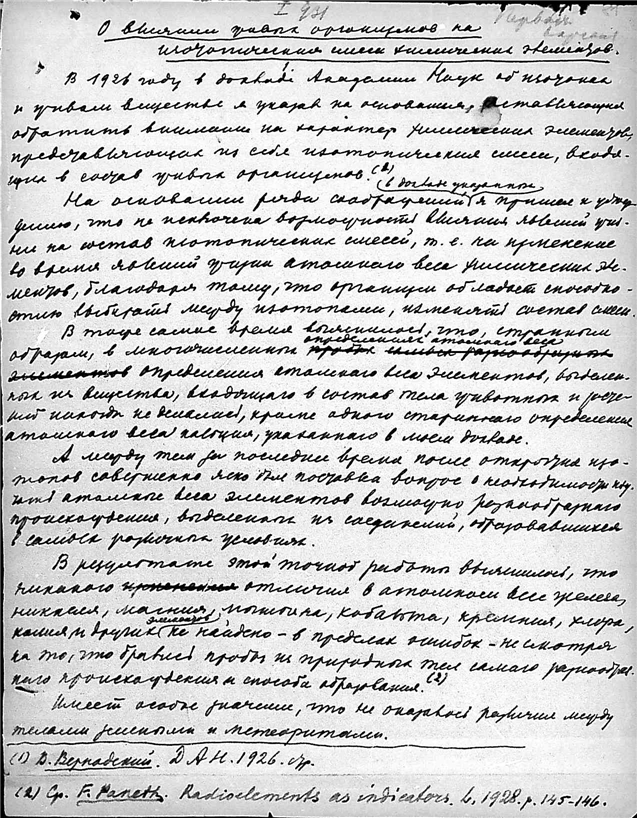 I 931
Первая
О влиянии живых организмов на
изотопические смеси химических элементов.
В 1926 году в докладе Академии Наук об изотопах
и живом веществе я указал на основания, заставляющия
обратить внимание на характер химических элементов,
представляющих из себя изотопическия смеси, входя-
щих в состав живых организмов. (1)
в докладе указанных
На основании ряда соображений я пришел к убеж-
дению, что не исключена возможность влияния явлений жиз-
ни на состав изотопических смесей, т.е. на изменение
во время явлений жизни атомного веса химических эле-
ментов, благодаря тому, что организмы обладают способно-
стью выбирать между изотопами, изменять состав смеси.
В тоже самое время выяснилось, что, странным
определениях атомного веса
образом, в многочисленных
элементов определения атомного веса элементов, выделен-
ных из вещества, входящаго в состав тела животных и расте-
ний никогда не делались, кроме одного стариннаго определения
атомного веса кальция, указаннаго в моем докладе.
А между тем за последнее время после открытия изо-
топов совершенно ясно был поставлен вопрос о необходимости изу-
чить атомные веса элементов возможно разнообразнаго
происхождения, выделенных из соединений, образовавшихся
в самых различных условиях.
В результате этой точной работы выяснилось, что
никакого изменения отличия в атомном весе железа,
никкеля, магния, мышьяка, кобальта, кремния, хлора,
элементов
калия и других не найдено - в пределах ошибок - не смотря
на то, что брались пробы из природных тел самаго разнообраз-
наго происхождения и способа образования. (2)
Имеет особое значение, что не оказалось различия между
телами земными и метеоритами.
(1) В. Вернадский. ДАН. 1926. стр.
(2) Ср. F. Paneth. Radioelements as indicators. L. 1928. p. 145-146.